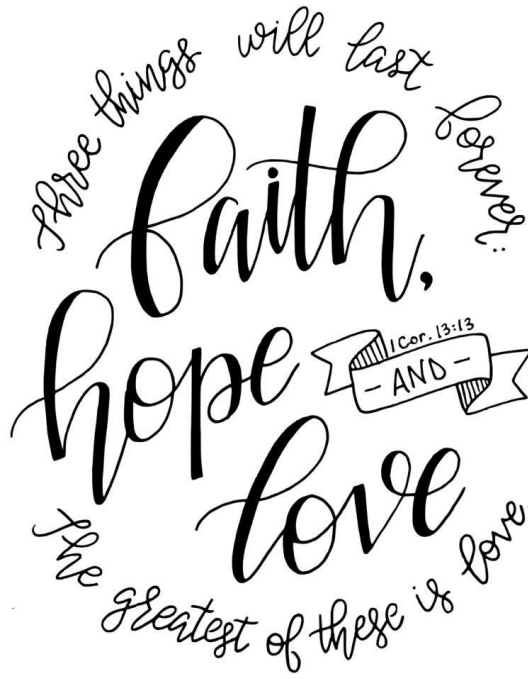 three things will last forever:
faith,
hope
1 Cor. 13:13
- AND -
love
the greatest of these is love